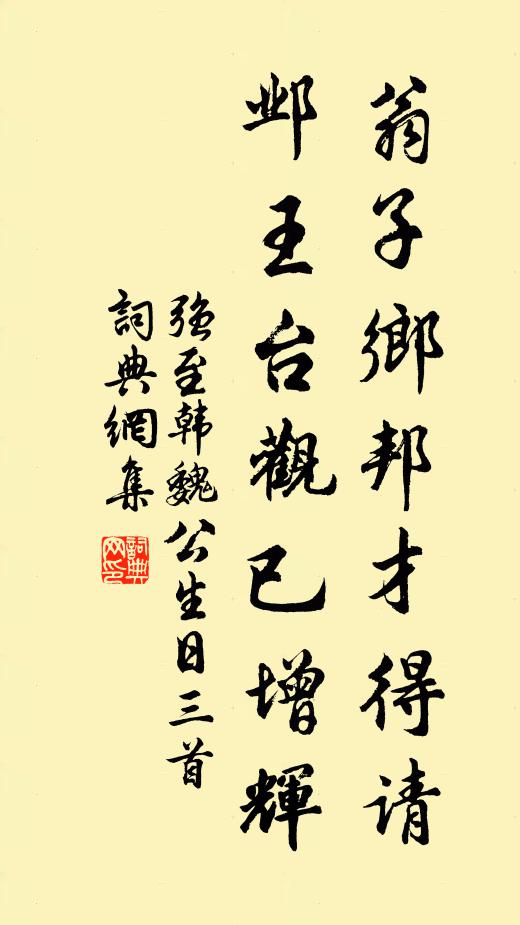 翁子鄉邦才得请
邺王台觀已增輝
强至韩魏公生日三首
詞典網集
詞典网印